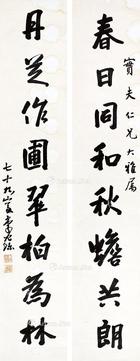 春日同和秋蟾共朗
寶夫仁兄大雅屬
丹芝作圃翠柏為林
七十九叟